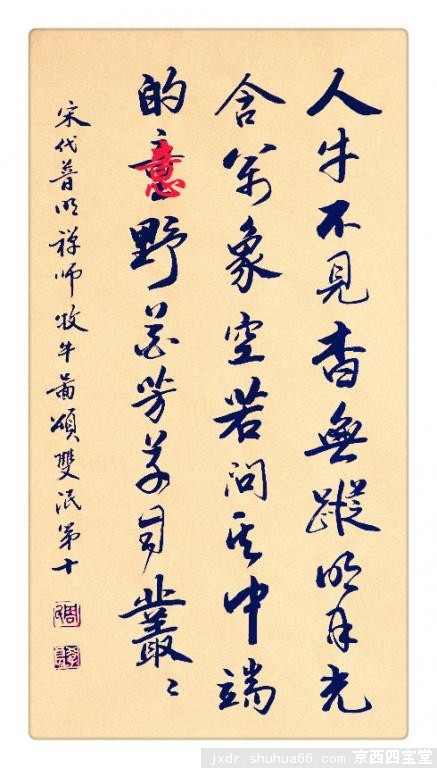 人牛不見杳無蹤明月光
含萬象空若問其中端
的意野花芳草自叢々
宋代普明禪师牧牛圖頌雙泯第十
jxdr.shuhua66.com 京西四宝堂